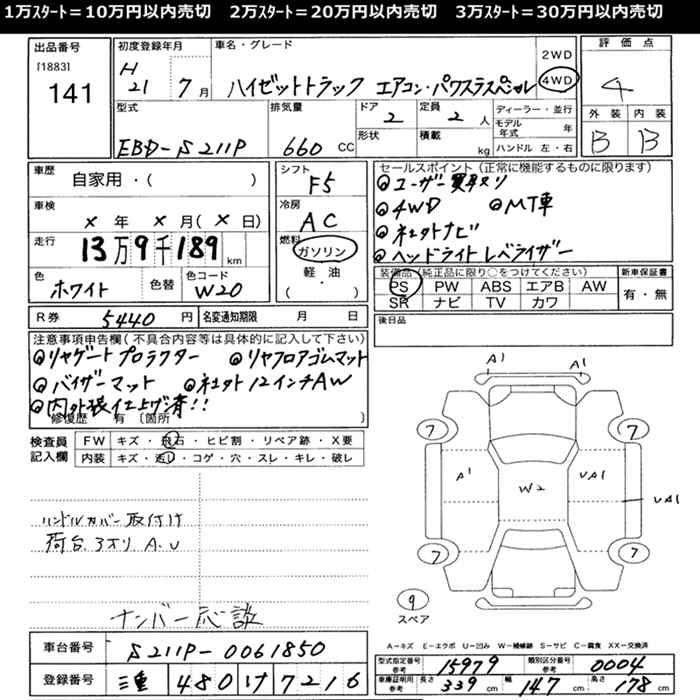 1万ｽﾀｰﾄ＝10万円以内売切 2万ｽﾀｰﾄ＝20万円以内売切 3万ｽﾀｰﾄ＝30万円以内売切
出品番号 [1883] 141
初度登録年月 H21 7月
車名・グレード ハイゼットトラック エアコン・パワステスペシャル
2WD 4WD
評価点 4
外装 B 内装 B
型式 EBD-S211P
排気量 660 CC
ドア 2 定員 2人
形状 積載 kg
ディーラー・並行
モデル年式 年
ハンドル 左・右
車歴 自家用・( )
シフト F5
車検 × 年 × 月(×日)
冷房 AC
走行 13万9千189km
燃料 ガソリン 軽油 ( ・ )
色 ホワイト 色替 色コード W20
セールスポイント(正常に機能するものに限ります)
◎ユーザー買取り
◎4WD ◎MT車
◎社外ナビ
◎ヘッドライトレベライザー
装備品(純正品に限り○をつけてください)
PS PW ABS エアB AW
SR ナビ TV カワ
新車保証書 有・無
R券 5440円 名変通知期限 月 日
後日品
注意事項申告欄(不具合内容等は具体的に記入して下さい)
◎リヤゲートプロテクター ◎リヤフロアゴムマット
◎バイザーマット ◎社外12インチAW
◎内外装仕上げ済!!
修復歴 有 〔箇所
検査員記入欄
FW キズ・飛石・ヒビ割・リペア跡・X要
内装 キズ・汚レ・コゲ・穴・スレ・キレ・破レ
ハンドルカバー取付け
荷台 3オリ A.U
ナンバー応談
A1 A1
7 7
A1 W2 UA1 UA1
7 7
9 スペア
A－キズ E－エクボ U－凹み W－補修跡 S－サビ C－腐食 XX－交換済
車台番号 S211P-0061850
登録番号 三重 480 け 7216
型式指定番号 参考 15979 類別区分番号 参考 0004
車庫証明用 参考 長さ 339cm 幅 147cm 高さ 178cm